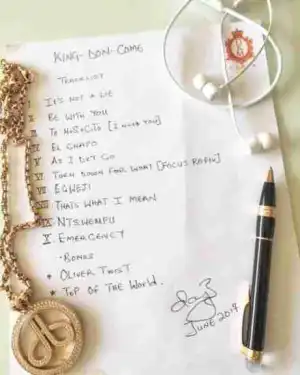 KING-DON-COME
TRACKLIST
I IT'S NOT A LIE
II BE WITH YOU
III TE NECESITO [I NEED YOU]
IV EL CHAPO
V AS I DEY GO
VI TURN DOWN FOR WHAT [FOCUS RAMIN]
VII EGWEJI
VIII THATS WHAT I MEAN
IX NTSWEMPU
X EMERGENCY
- BONUS
* OLIVER TWIST
* TOP OF THE WORLD.
JUNE 2017